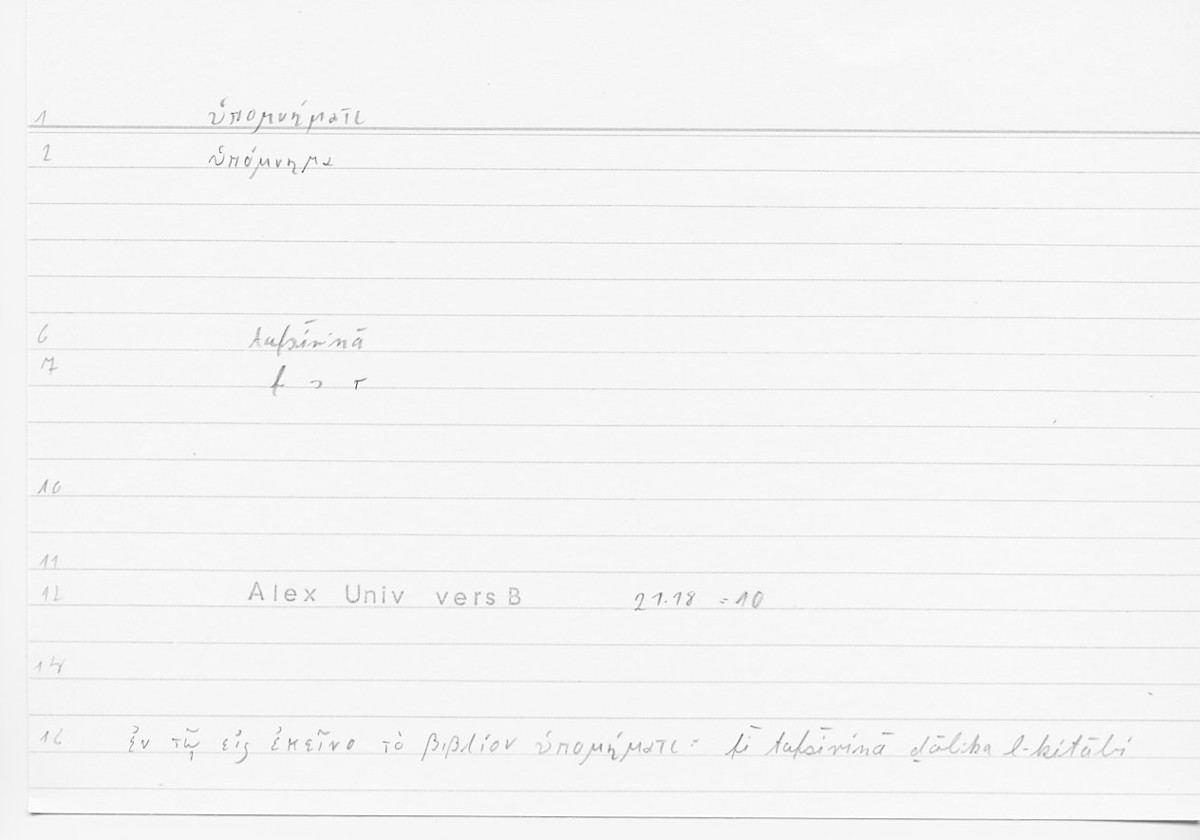 1 ὑπομνήματι
2 ὑπόμνημα
6 tafsīrinā
7 f s r
10
11
12 Alex Univ vers B 21.18 = 10
14
16 ἐν τῷ εἰς ἐκεῖνο τὸ βιβλίον ὑπομήματι: fī tafsīrinā ḏālika l-kitābi